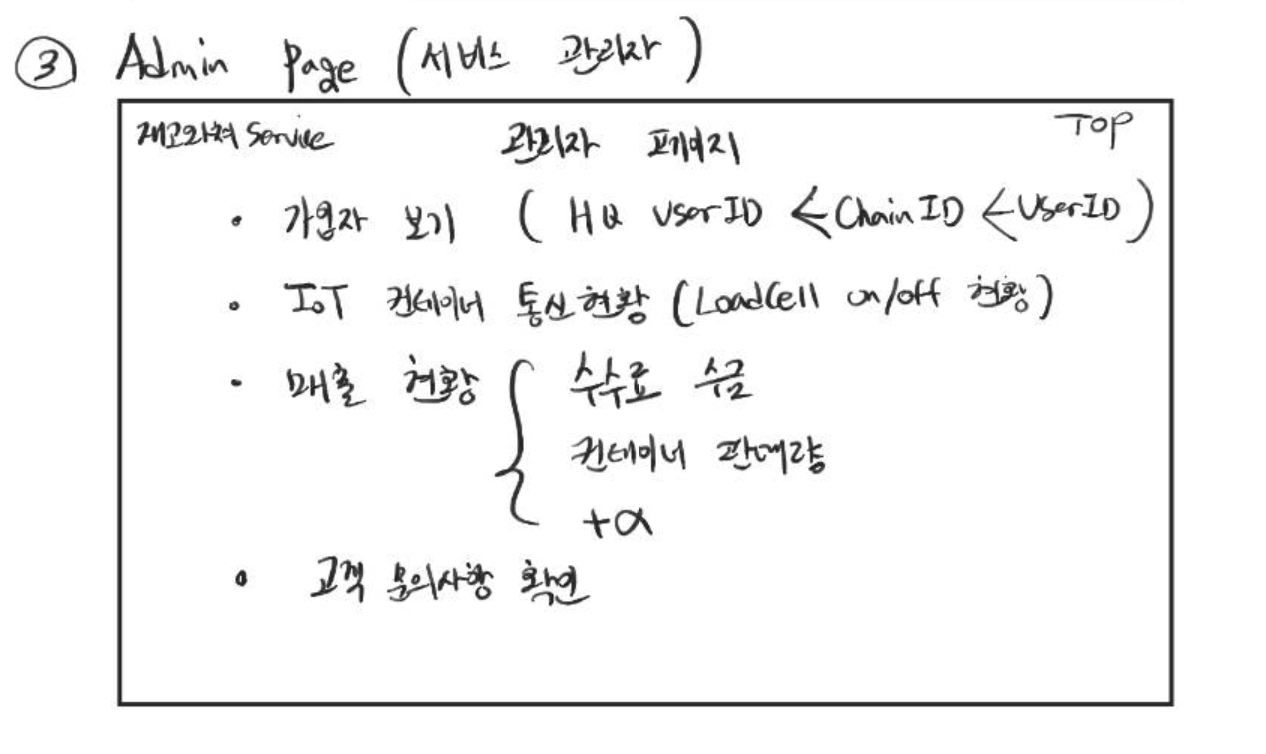 ③ Admin Page (서비스 관리자)
재고와쳐 Service 관리자 페이지 TOP
• 가입자 보기 (HQ UserID ← Chain ID ← UserID)
• IoT 컨테이너 통신현황 (LoadCell on/off 현황)
• 매출 현황 { 수수료 수금
컨테이너 판매량
+α
• 고객 문의사항 확인